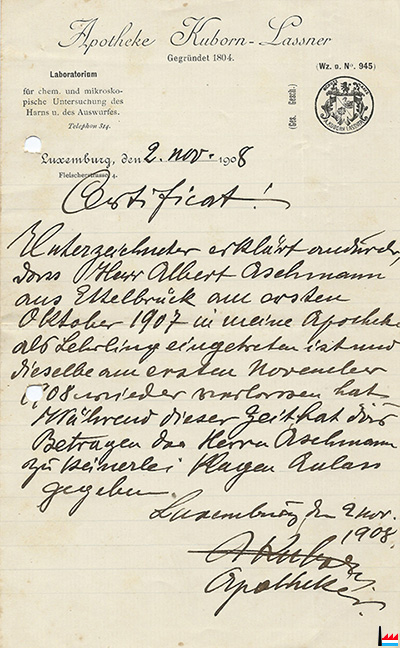 Apotheke Kuborn-Lassner
Gegründet 1804.
(Wz. a. No. 945)
Laboratorium
für chem. und mikrosko-
pische Untersuchung des
Harns u. des Auswurfes.
Telephon 314.
(Ges. Gesch.)
Luxemburg, den 2. nov. 1908
Fleischerstrasse 4.
Certificat!
Unterzeichneter erklärt andurch,
dass Herr Albert Aschmann
aus Ettelbrück am ersten
Oktober 1907 in meine Apotheke
als Lehrling eingetreten ist und
dieselbe am ersten November
1908 wieder verlassen hat
Während dieser Zeit hat das
Betragen des Herrn Aschmann
zu keinerlei Klagen Anlass
gegeben
Luxemburg, den 2 nov.
1908.
A Kuborn
Apotheker